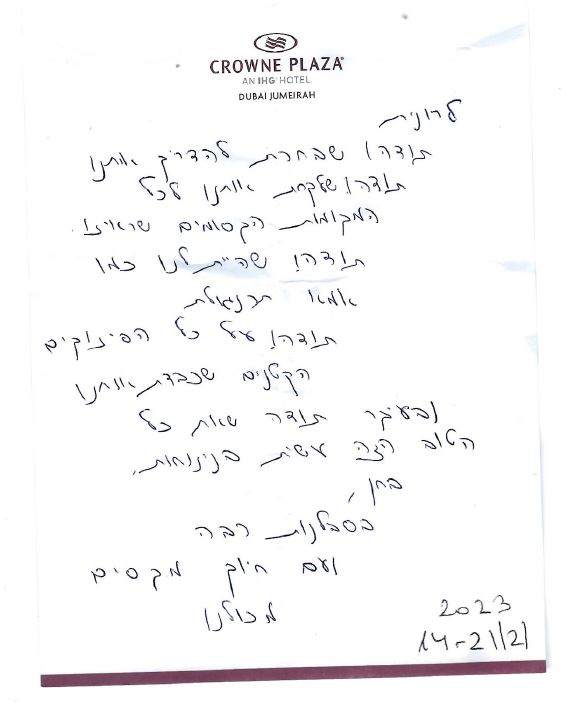 CROWNE PLAZA
AN IHG HOTEL
DUBAI JUMEIRAH
לרונית
תודה! שבחרת להדריך אותנו
תודה! שלקחת אותנו לכל
המקומות הקסומים שראינו.
תודה! שהיית לנו כמו
אמא תרנגולת
תודה! על כל הפינוקים
הקטנים שכבדת אותנו
ובעיקר תודה שאת כל
הטוב הזה עשית בנינוחות,
בחן,
בסבלנות רבה
ועם חיוך מקסים
מכולנו
2023
14-21/2